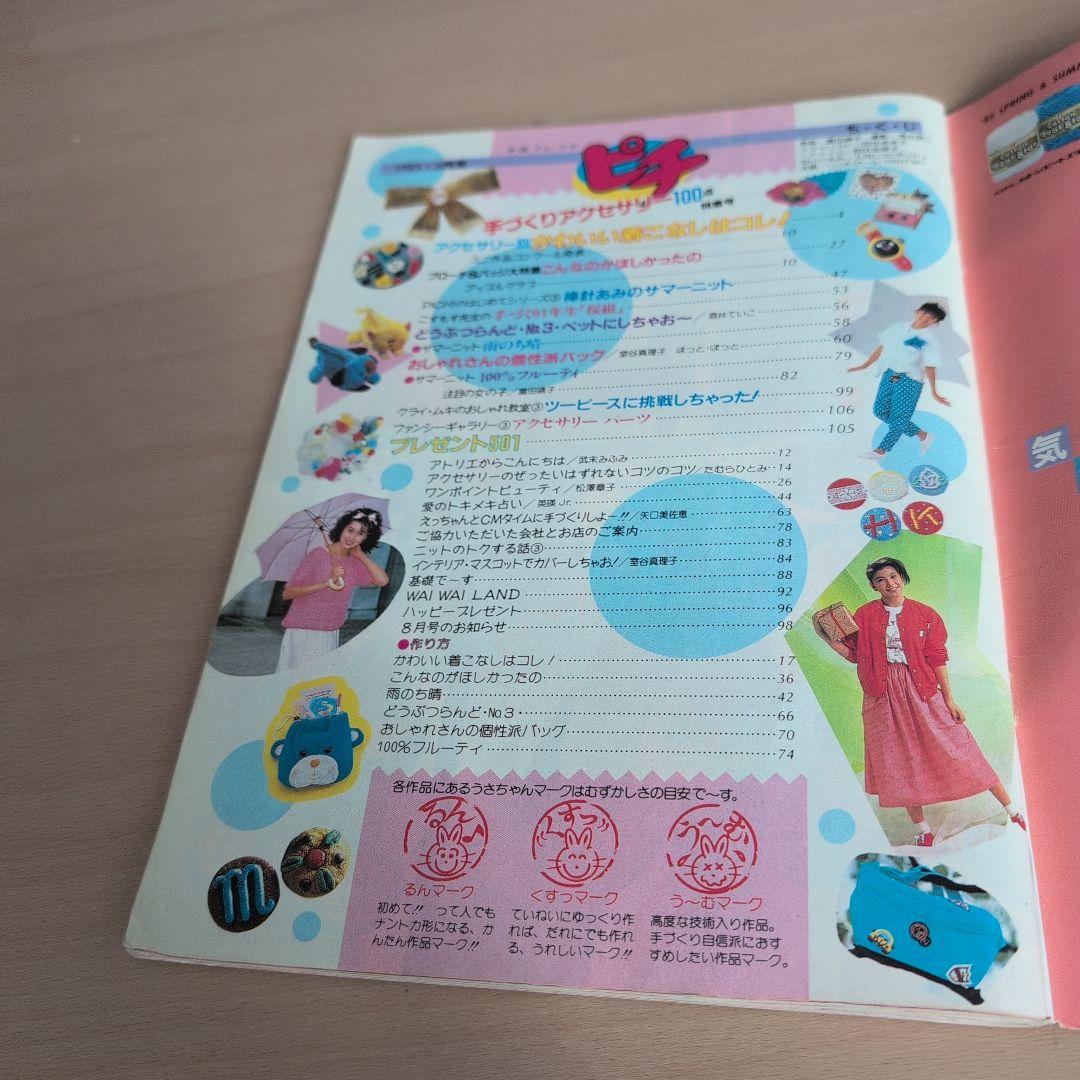 も・く・じ
手芸フレンド
ピチ
手づくりアクセサリー100点
特集号
アクセサリー別かわいい着こなしはコレ！ 4
10
ブローチ&バッジ大特集こんなのがほしかったの 27
アップルクラブ 30
はじめてシリーズ③棒針あみのサマーニット 47
こすもす先生の手づくり1年生「桜組」 53
どうぶつらんど・No.3・ペットにしちゃお〜／香林ていこ 56
●サマーニット 雨のち晴 58
おしゃれさんの個性派バッグ／室谷真理子 ほっと・ぽっと 60
●サマーニット 100%フルーティ 79
注目の女の子／富田靖子 82
クライ・ムキのおしゃれ教室③ツーピースに挑戦しちゃった！ 99
ファンシーギャラリー③アクセサリー パーツ 106
プレゼント501 105
アトリエからこんにちは／武末みふみ 12
アクセサリーのぜったいはずれないコツのコツ／たむらひとみ 14
ワンポイントビューティ／松澤章子 26
愛のトキメキ占い／英瑛Jr. 44
えっちゃんとCMタイムに手づくりしよー!!／矢口美佐恵 63
ご協力いただいた会社とお店のご案内 78
ニットのトクする話③ 83
インテリア・マスコットでカバーしちゃお！／室谷真理子 84
基礎で〜す 88
WAI WAI LAND 92
ハッピープレゼント 96
8月号のお知らせ 98
●作り方
かわいい着こなしはコレ！ 17
こんなのがほしかったの 36
雨のち晴 42
どうぶつらんど・No.3 66
おしゃれさんの個性派バッグ 70
100%フルーティ 74
各作品にあるうさちゃんマークはむずかしさの目安で〜す。
るん♪
くすっ
う〜む
るんマーク
初めて!! って人でも
ナントカ形になる、か
んたん作品マーク!!
くすっマーク
ていねいにゆっくり作
れば、だれにでも作れ
る、うれしいマーク!!
う〜むマーク
高度な技術入り作品。
手づくり自信派におす
すめしたい作品マーク。
H
K
m
気